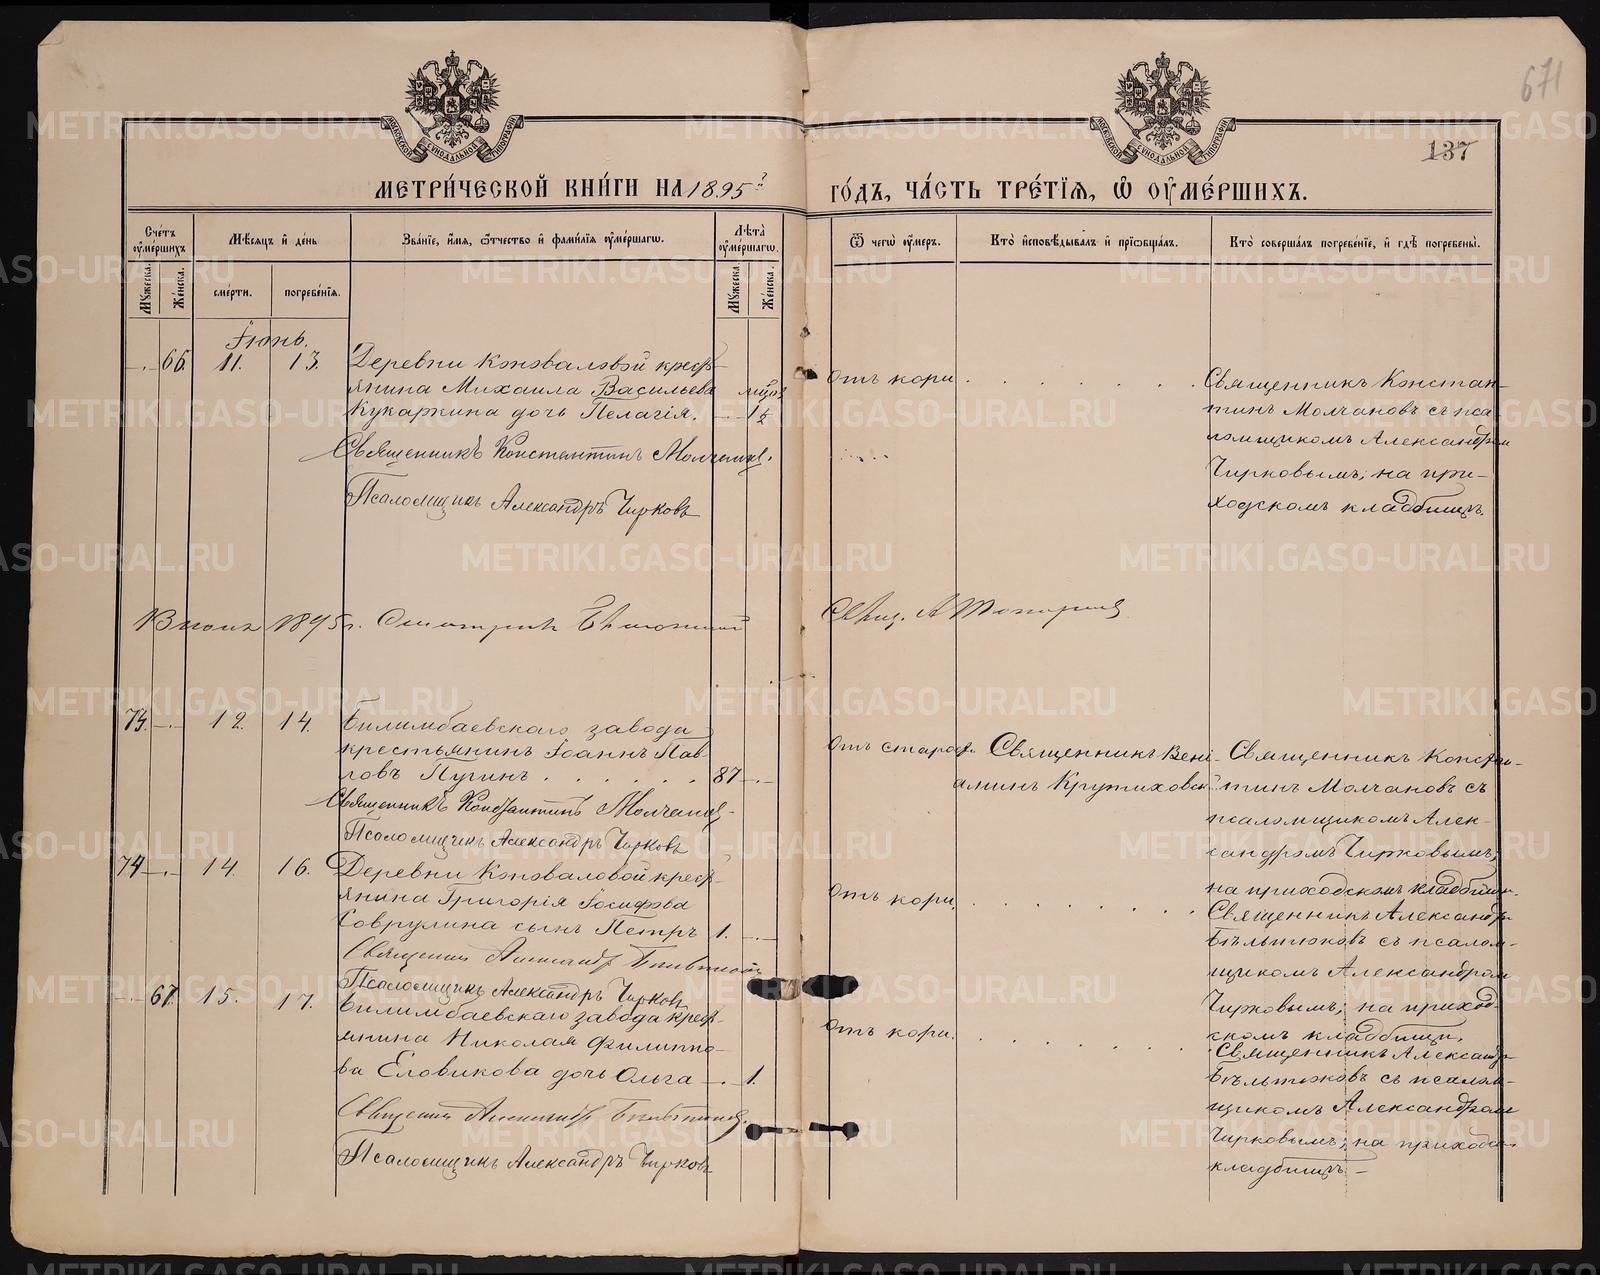 671
137
МЕТРИ́ЧЕСКОЙ КНИ́ГИ НА 1895 ГО́ДЪ, ЧА́СТЬ ТРЕ́ТІѦ, Ѿ ОУ҆МЕ́РШИХЪ.
Сче́тъ оу҆ме́ршихъ
Мꙋ́жеска.
Же́нска.
Мѣ́сѧцъ и҆ де́нь
сме́рти.
погребе́нїѧ.
Зва́нїе, и҆́мѧ, ѻ҆́тчество и҆ фами́лїѧ оу҆ме́ршагѡ.
Лѣ́та оу҆ме́ршагѡ.
Мꙋ́жеска.
Же́нска.
Ѿ чегѡ̀ оу҆́меръ.
Кто̀ и҆сповѣ́дывалъ и҆ прїѡбща́лъ.
Кто̀ соверша́лъ погребе́нїе, и҆ гдѣ̀ погребены̀.
Іюнь.
66. 11. 13. Деревни Коноваловой кресть-
янина Михаила Васильева
Кукаркина дочь Пелагія. 1½
Священникъ Константинъ Молчановъ.
Псаломщикъ Александръ Чирковъ
Отъ кори
Священникъ Констан-
тинъ Молчановъ съ пса-
ломщикомъ Александромъ
Чирковымъ; на при-
ходскомъ кладбищѣ.
1895 г.
73. 12. 14. Билимбаевскаго завода
крестьянинъ Іоаннъ Пав-
ловъ Пугинъ 87
Священникъ Константинъ Молчановъ
Псаломщикъ Александръ Чирковъ
Отъ старости
Священникъ Вені-
аминъ Крутиховскій
Священникъ Констан-
тинъ Молчановъ съ
псаломщикомъ Алек-
сандромъ Чирковымъ;
на приходскомъ кладбищѣ.
74 14 16. Деревни Коноваловой кресть-
янина Григорія Іосифова
Соврулина сынъ Петръ 1.
Священникъ Александръ Бѣльтюковъ
Псаломщикъ Александръ Чирковъ
Отъ кори.
Священникъ Александръ
Бѣльтюковъ съ псалом-
щикомъ Александромъ
Чирковымъ; на приход-
скомъ кладбищѣ.
67. 15. 17. Билимбаевскаго завода кресть-
янина Николая Филиппо-
ва Еловикова дочь Ольга 1.
Священникъ Александръ Бѣльтюковъ.
Псаломщикъ Александръ Чирковъ
Отъ кори.
Священникъ Александръ
Бѣльтюковъ съ псалом-
щикомъ Александромъ
Чирковымъ; на приходск.
кладбищѣ.
METRIKI.GASO-URAL.RU